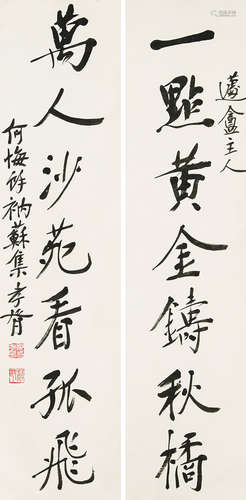 盦主人
一點黃金鑄秋橘
萬人沙苑看孤飛
何悔餘衲蘇集孝胥